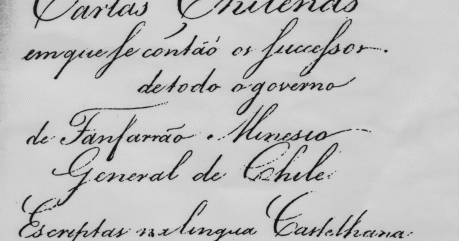 Cartas Chilenas
em que se contão os successos
de todo o governo
de Fanfarrão Minesio
General de Chile
Escreptas na lingua Castelhana